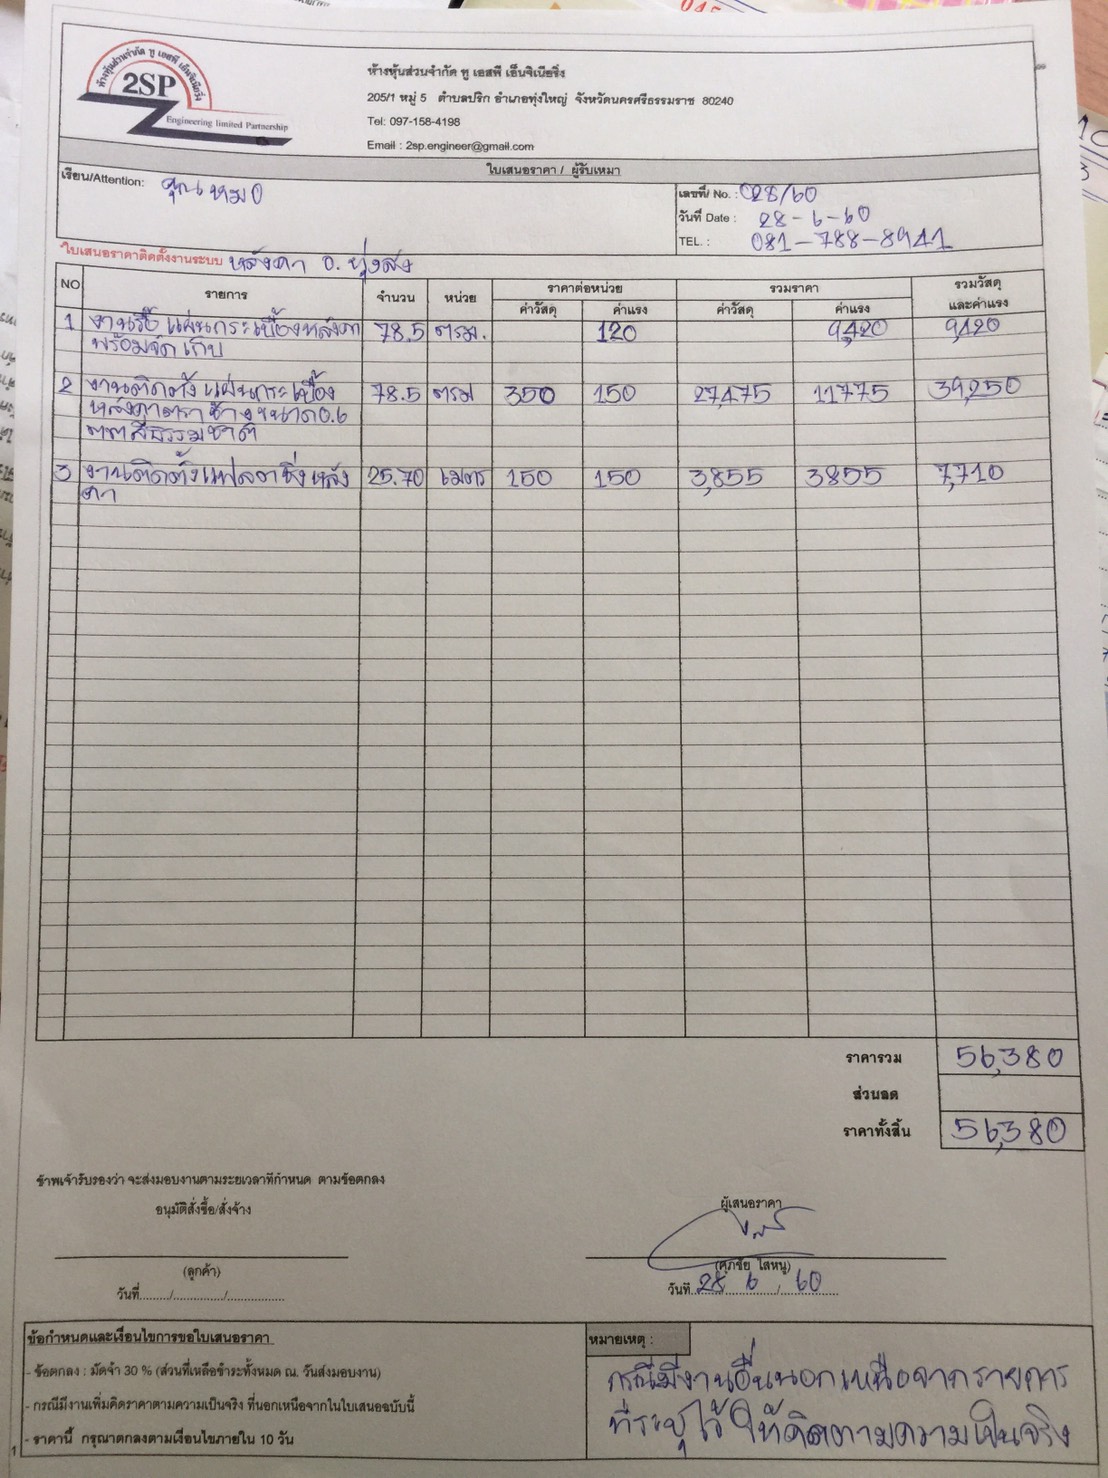 ห้างหุ้นส่วนจำกัด ทู เอสพี เอ็นจิเนียริ่ง
2SP
Engineering limited Partnership
ห้างหุ้นส่วนจำกัด ทู เอสพี เอ็นจิเนียริ่ง
205/1 หมู่ 5 ตำบลปริก อำเภอทุ่งใหญ่ จังหวัดนครศรีธรรมราช 80240
Tel: 097-158-4198
Email : 2sp.engineer@gmail.com
ใบเสนอราคา / ผู้รับเหมา
เรียน/Attention: คุณหมอ
เลขที่/ No. : 028/60
วันที่ Date : 28-6-60
TEL. : 081-788-8941
*ใบเสนอราคาติดตั้งงานระบบ หลังคา อ.ทุ่งสง
NO รายการ จำนวน หน่วย ราคาต่อหน่วย รวมราคา รวมวัสดุ
ค่าวัสดุ ค่าแรง ค่าวัสดุ ค่าแรง และค่าแรง
1 งานรื้อ แผ่นกระเบื้องหลังคา 78.5 ตรม. 120 9,420 9,420
พร้อมจัดเก็บ
2 งานติดตั้งแผ่นกระเบื้อง 78.5 ตรม 350 150 27,475 11,775 39,250
หลังคาตราช้างขนาด 0.6
ตตสีธรรมชาติ
3 งานติดตั้งแฟลตชิ่งหลัง 25.70 เมตร 150 150 3,855 3,855 7,710
คา
ราคารวม 56,380
ส่วนลด
ราคาทั้งสิ้น 56,380
ข้าพเจ้ารับรองว่า จะส่งมอบงานตามระยเวลาที่กำหนด ตามข้อตกลง
อนุมัติสั่งซื้อ/สั่งจ้าง
ผู้เสนอราคา
(ลูกค้า)
(ศุภชัย ใสหนู)
วันที่......../............/..............
วันที่ 28 / 6 / 60
ข้อกำหนดและเงื่อนไขการขอใบเสนอราคา
- ข้อตกลง : มัดจำ 30 % (ส่วนที่เหลือชำระทั้งหมด ณ. วันส่งมอบงาน)
- กรณีมีงานเพิ่มคิดราคาตามความเป็นจริง ที่นอกเหนือจากในใบเสนอฉบับนี้
- ราคานี้ กรุณาตกลงตามเงื่อนไขภายใน 10 วัน
หมายเหตุ :
กรณีมีงานอื่นนอกเหนือจากรายการ
ที่ระบุไว้ ให้คิดตามความเป็นจริง